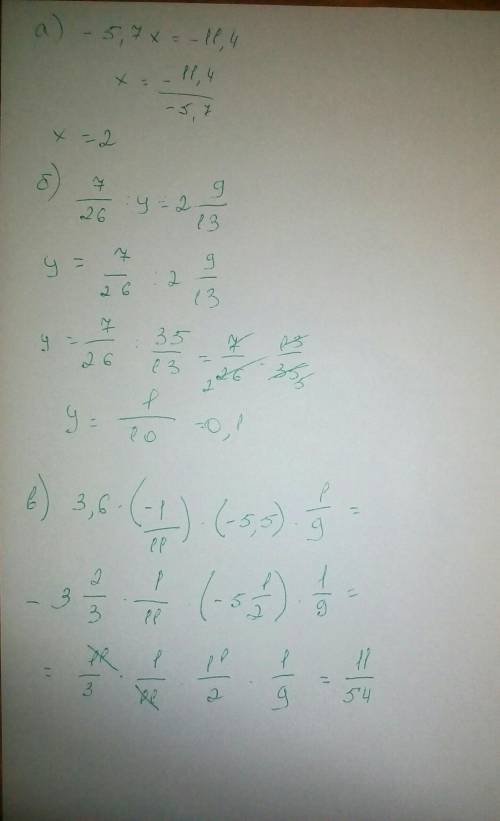 а) - 5,7x = -11,4
x = -11,4/-5,7
x = 2
б) 7/26 : y = 2 9/13
y = 7/26 : 2 9/13
y = 7/26 : 35/13 = 7/26 · 13/35 2 5
y = 1/10 = 0,1
в) 3,6 · (-1/11) · (-5,5) · 1/9 =
- 3 2/3 · 1/11 · (-5 1/2) · 1/9 =
= 11/3 · 1/11 · 11/2 · 1/9 = 11/54